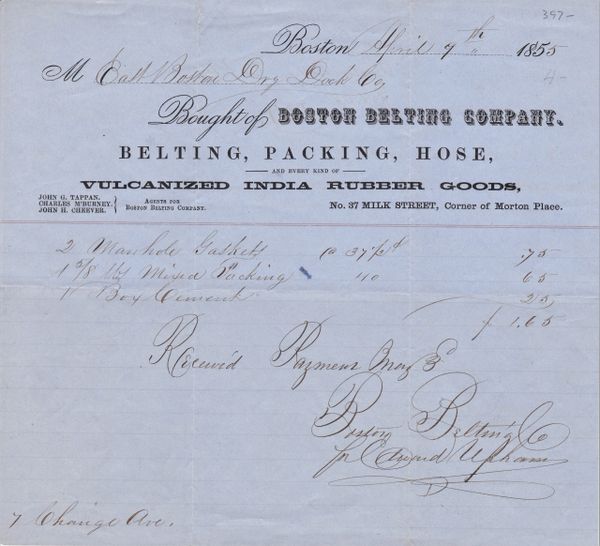 397-
Boston April 7th 1855
4-
M East Boston Dry Dock Co,
Bought of BOSTON BELTING COMPANY.
BELTING, PACKING, HOSE,
AND EVERY KIND OF
VULCANIZED INDIA RUBBER GOODS,
JOHN G. TAPPAN,
CHARLES M'BURNEY,
JOHN H. CHEEVER.
AGENTS FOR
BOSTON BELTING COMPANY.
No. 37 MILK STREET, Corner of Morton Place.
2 Manhole Gaskets @ 37 1/2 ¢ .75
1 5/8 lbs Mixed Packing 40 65
1 Box Cement 25,
1.65
Received Payment May 3
Boston Belting Co
for Edward Upham
7 Change Ave.